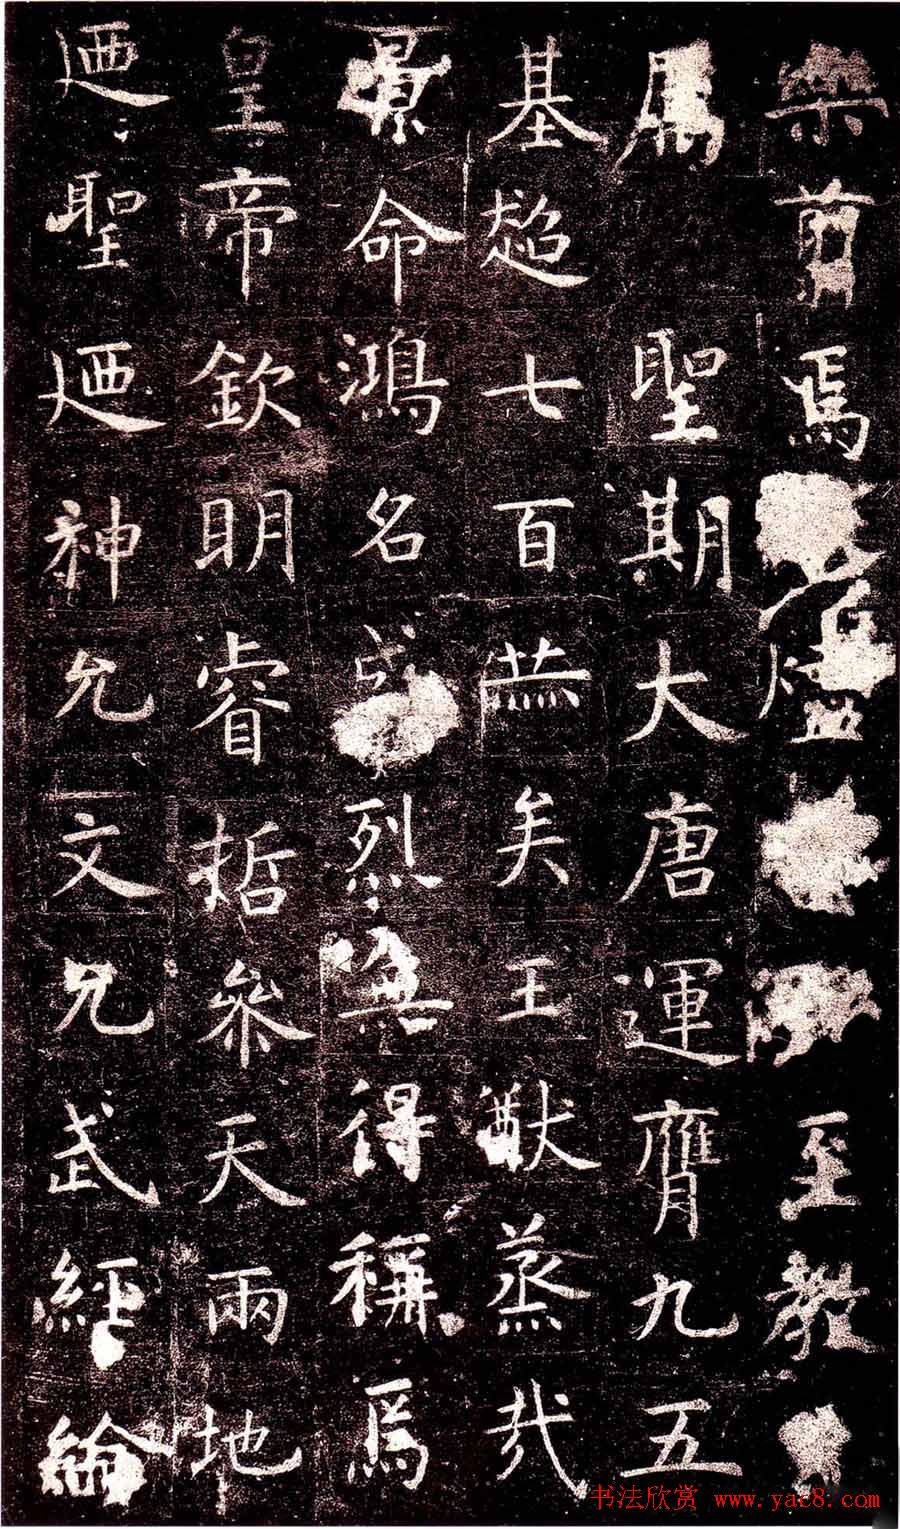 樂翦焉至教
屬聖期大唐運膺九五
基超七百赫矣王猷蒸哉
景命鴻名盛烈無得稱焉
皇帝欽明睿哲參天兩地
迺聖迺神允文允武經綸
书法欣赏 www.yac8.com